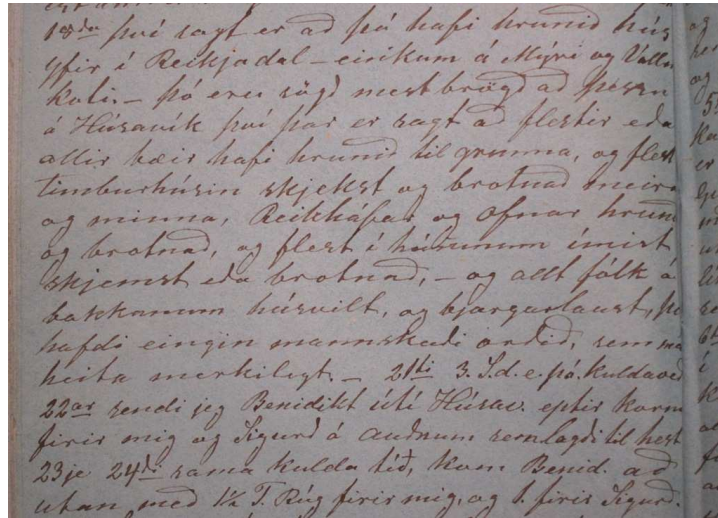 18da því sagt er að þá hafi hrunið hús
yfir í Reikjadal – einkum á Mýri og Valla
koti. – þó eru sögð mest brögð að þessu
á Húsavík því þar er sagt að flestir eða
allir bæir hafi hrunið til grunna, og flest
timburhúsin skjekst og brotnað meira
og minna, Reikháfar og Ofnar hrunið
og brotnað, og flest í húsunum ímist
skjemst eða brotnað, – og allt fólk á
bakkanum húsvilt, og bjargarlaust, þó
hafdi eingin mannskaði orðið, sem má
heita merkilegt. – 21ti 3. S.d.e.þá. kuldaveð
22ar sendi jeg Benidikt útí Húsav. eptir korn
firir mig og Sigurð á Auðnum sem lagði til hest
23je 24di sama kulda tíð, kom Benid. að
utan með 1½ T. Rúg firir mig, og 1. firir Sigurð.